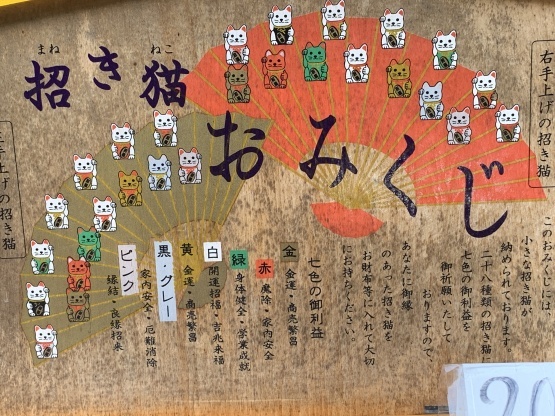 招き猫
まね
ねこ
おみくじ
右手上げの招き猫
手上げの招き猫
このおみくじには、
小さな招き猫が
納められております。
二十八種類の招き猫に
七色の御利益を
御祈願いたして
おりますので、
あなたに御縁
のあった招き猫を
お財布等に入れて大切
にお持ちください。
七色の御利益
金 金運・商売繁昌
赤 魔除・家内安全
緑 身体健全・営業成就
白 開運招福・吉兆来福
黄 金運・商売繁昌
黒・グレー 家内安全・厄難消除
ピンク 縁結・良縁招来
20